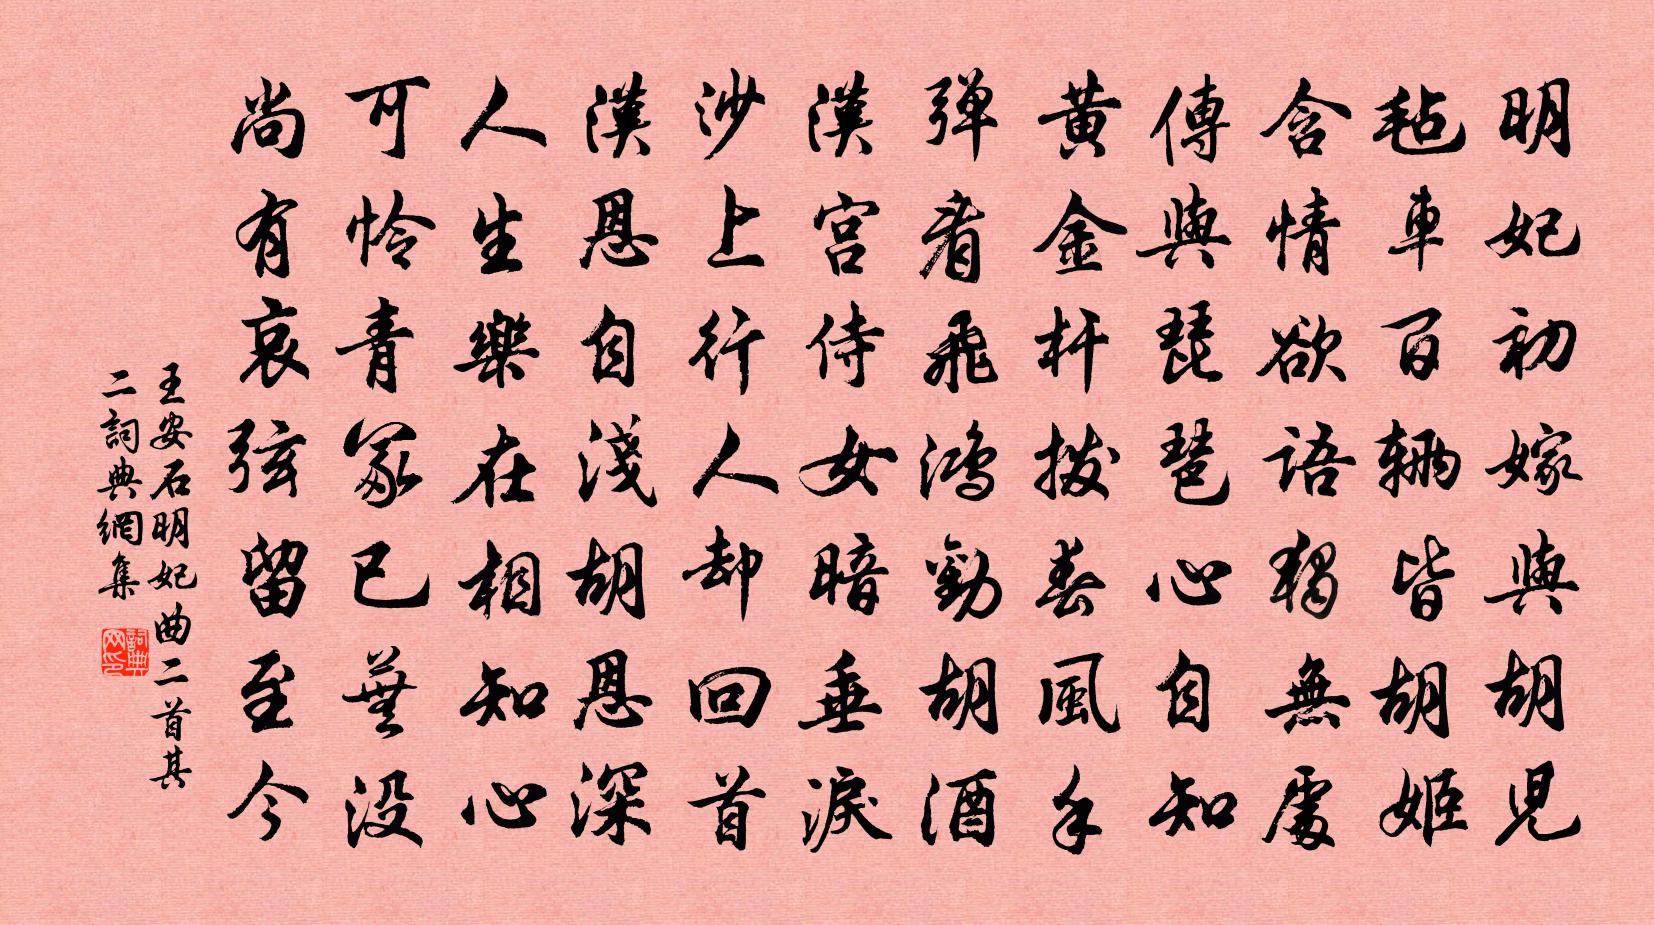 明妃初嫁與胡兒
毡車百辆皆胡姬
含情欲語獨無處
傳與琵琶心自知
黃金杆撥春風手
弹看飛鴻勸胡酒
漢宮侍女暗垂淚
沙上行人却回首
漢恩自淺胡恩深
人生樂在相知心
可怜青冢已蕪没
尚有哀弦留至今
王安石明妃曲二首其
二詞典網集
詞典
网印